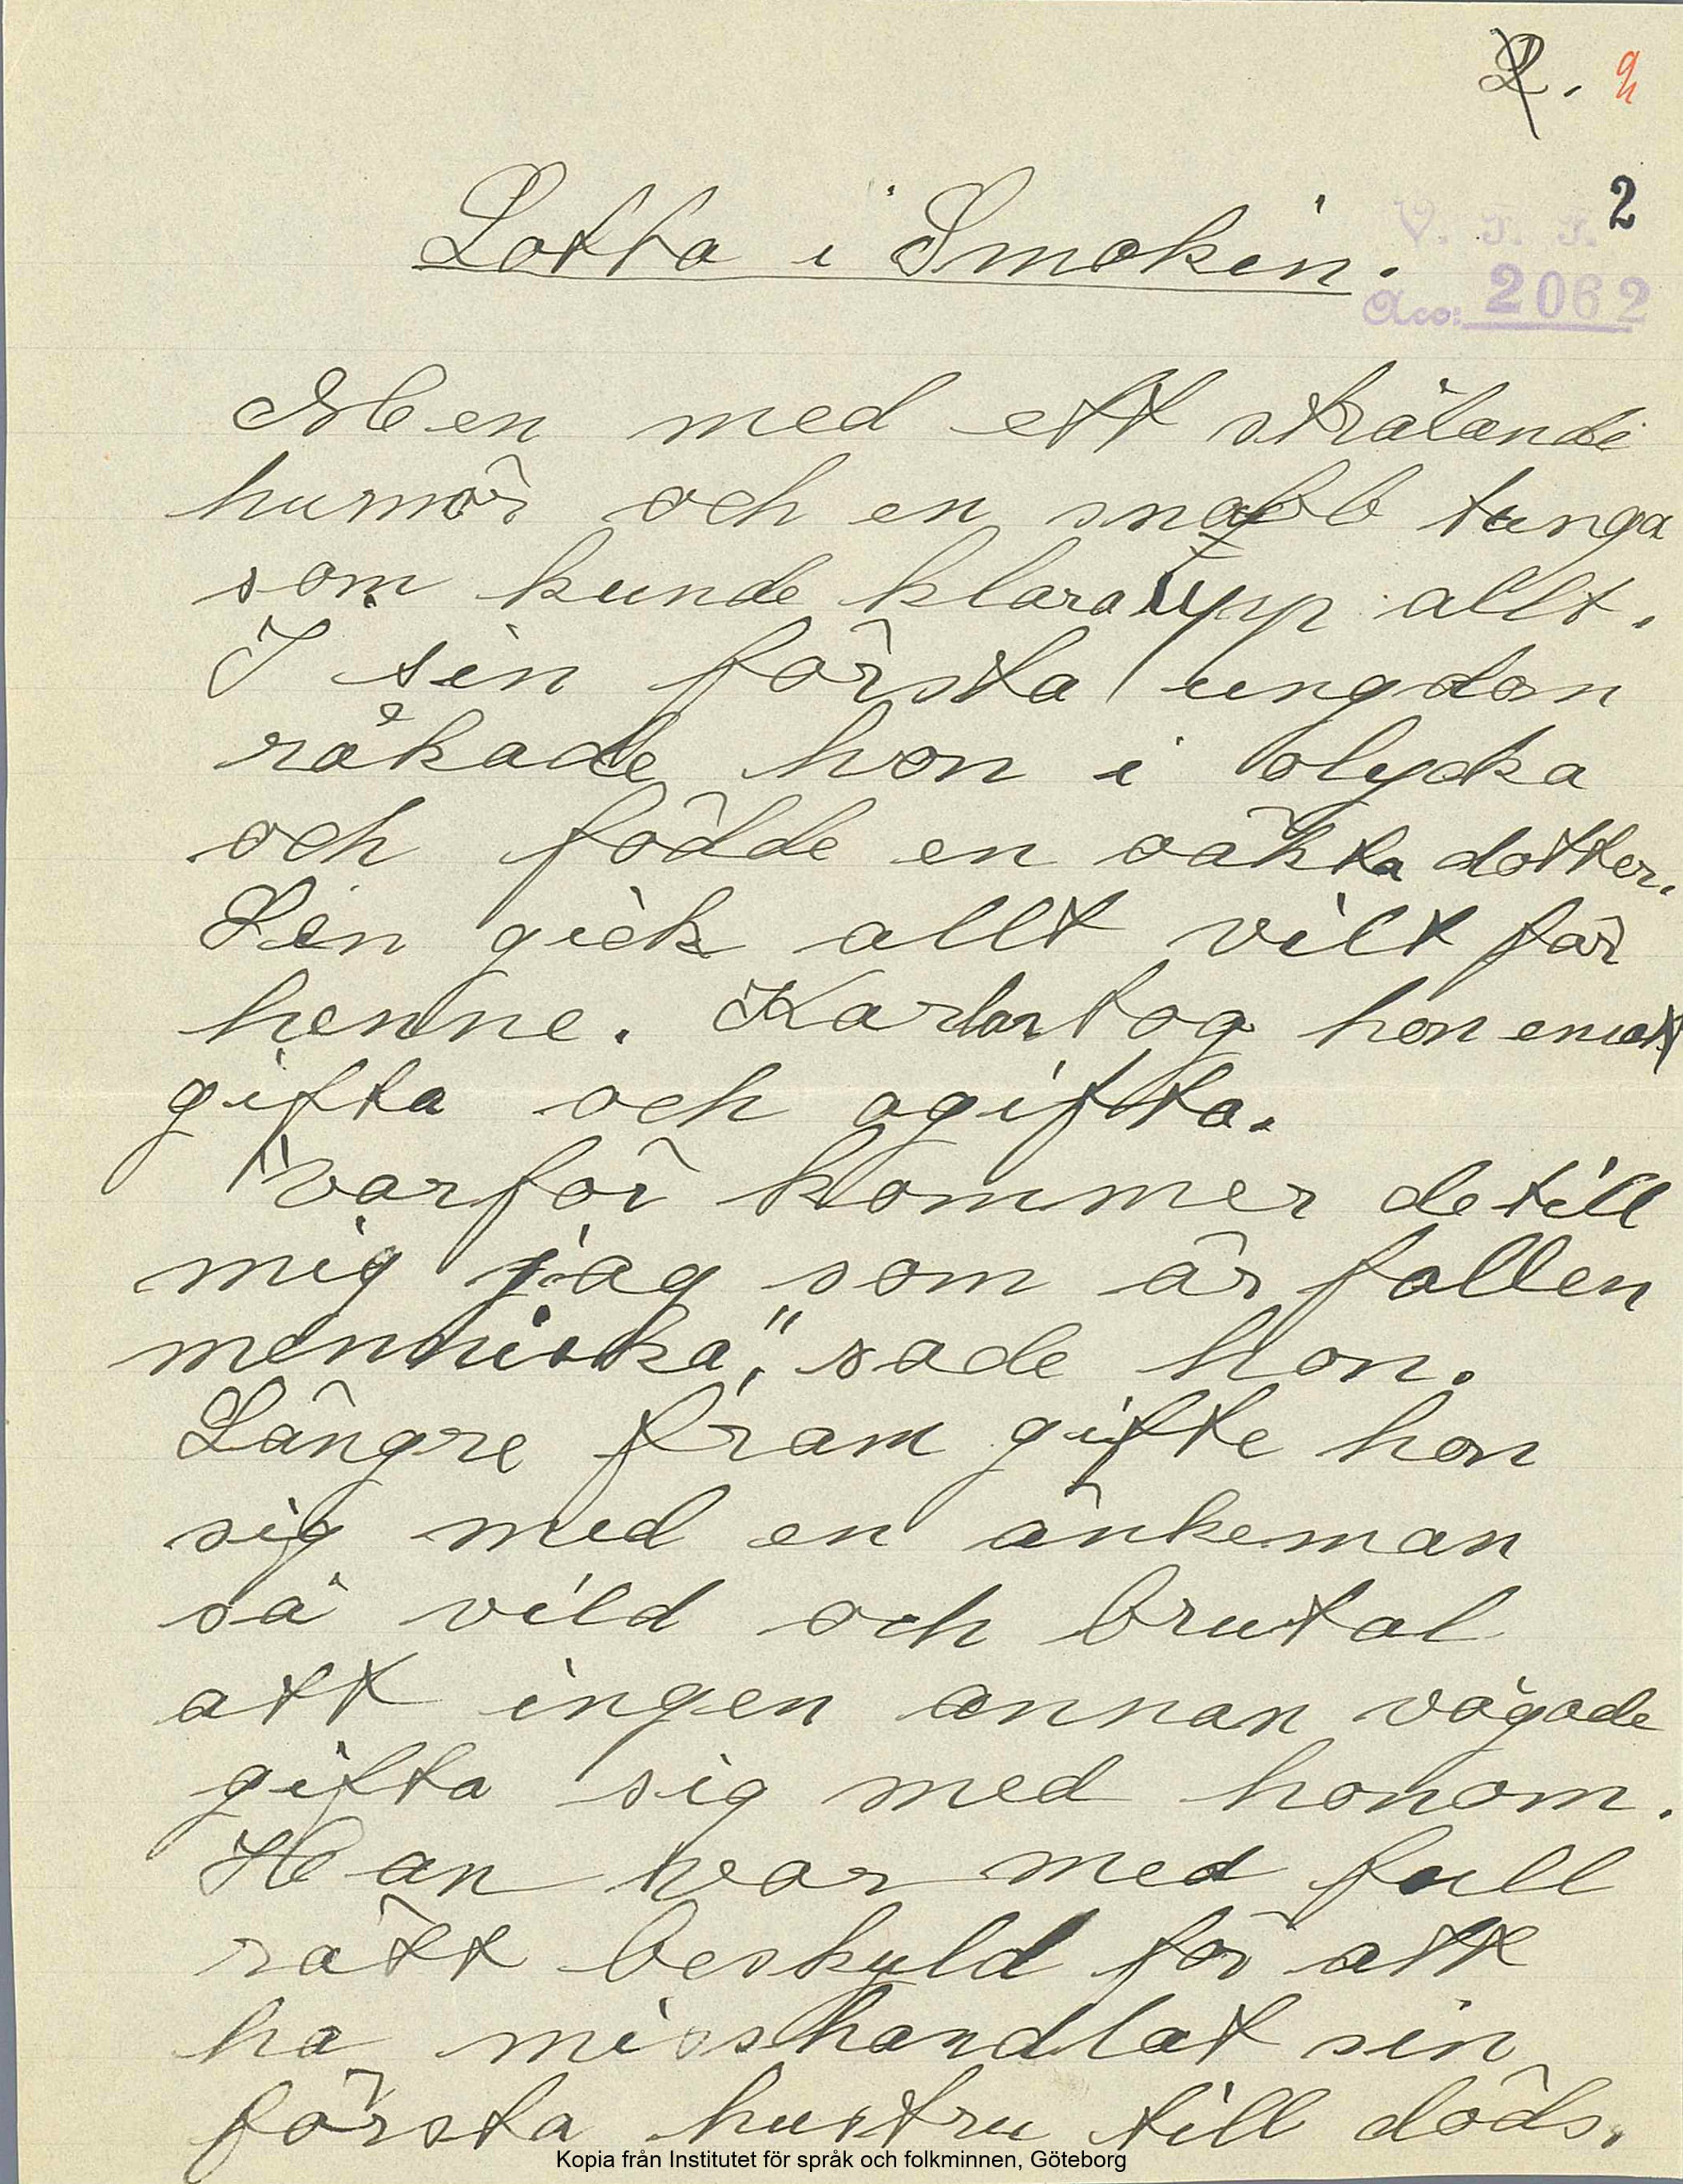 2. 2
2
Lotta i Smokin.
V. F. F.
Acc: 2062
Men med ett strålande
humör och en snabb tunga
som kunde klara upp allt.
I sin första ungdom
råkade hon i olycka
och födde en oäkta dotter.
Sen gick allt vilt för
henne. Karlar tog hon emot
gifta och ogifta.
"Varför kommer de till
mig jag som är fallen
menniska", sade hon.
Längre fram gifte hon
sig med en änkeman
så vild och brutal
att ingen annan vågade
gifta sig med honom.
Han var med full
rätt beskyld för att
ha misshandlat sin
första hustru till döds.
Kopia från Institutet för språk och folkminnen, Göteborg